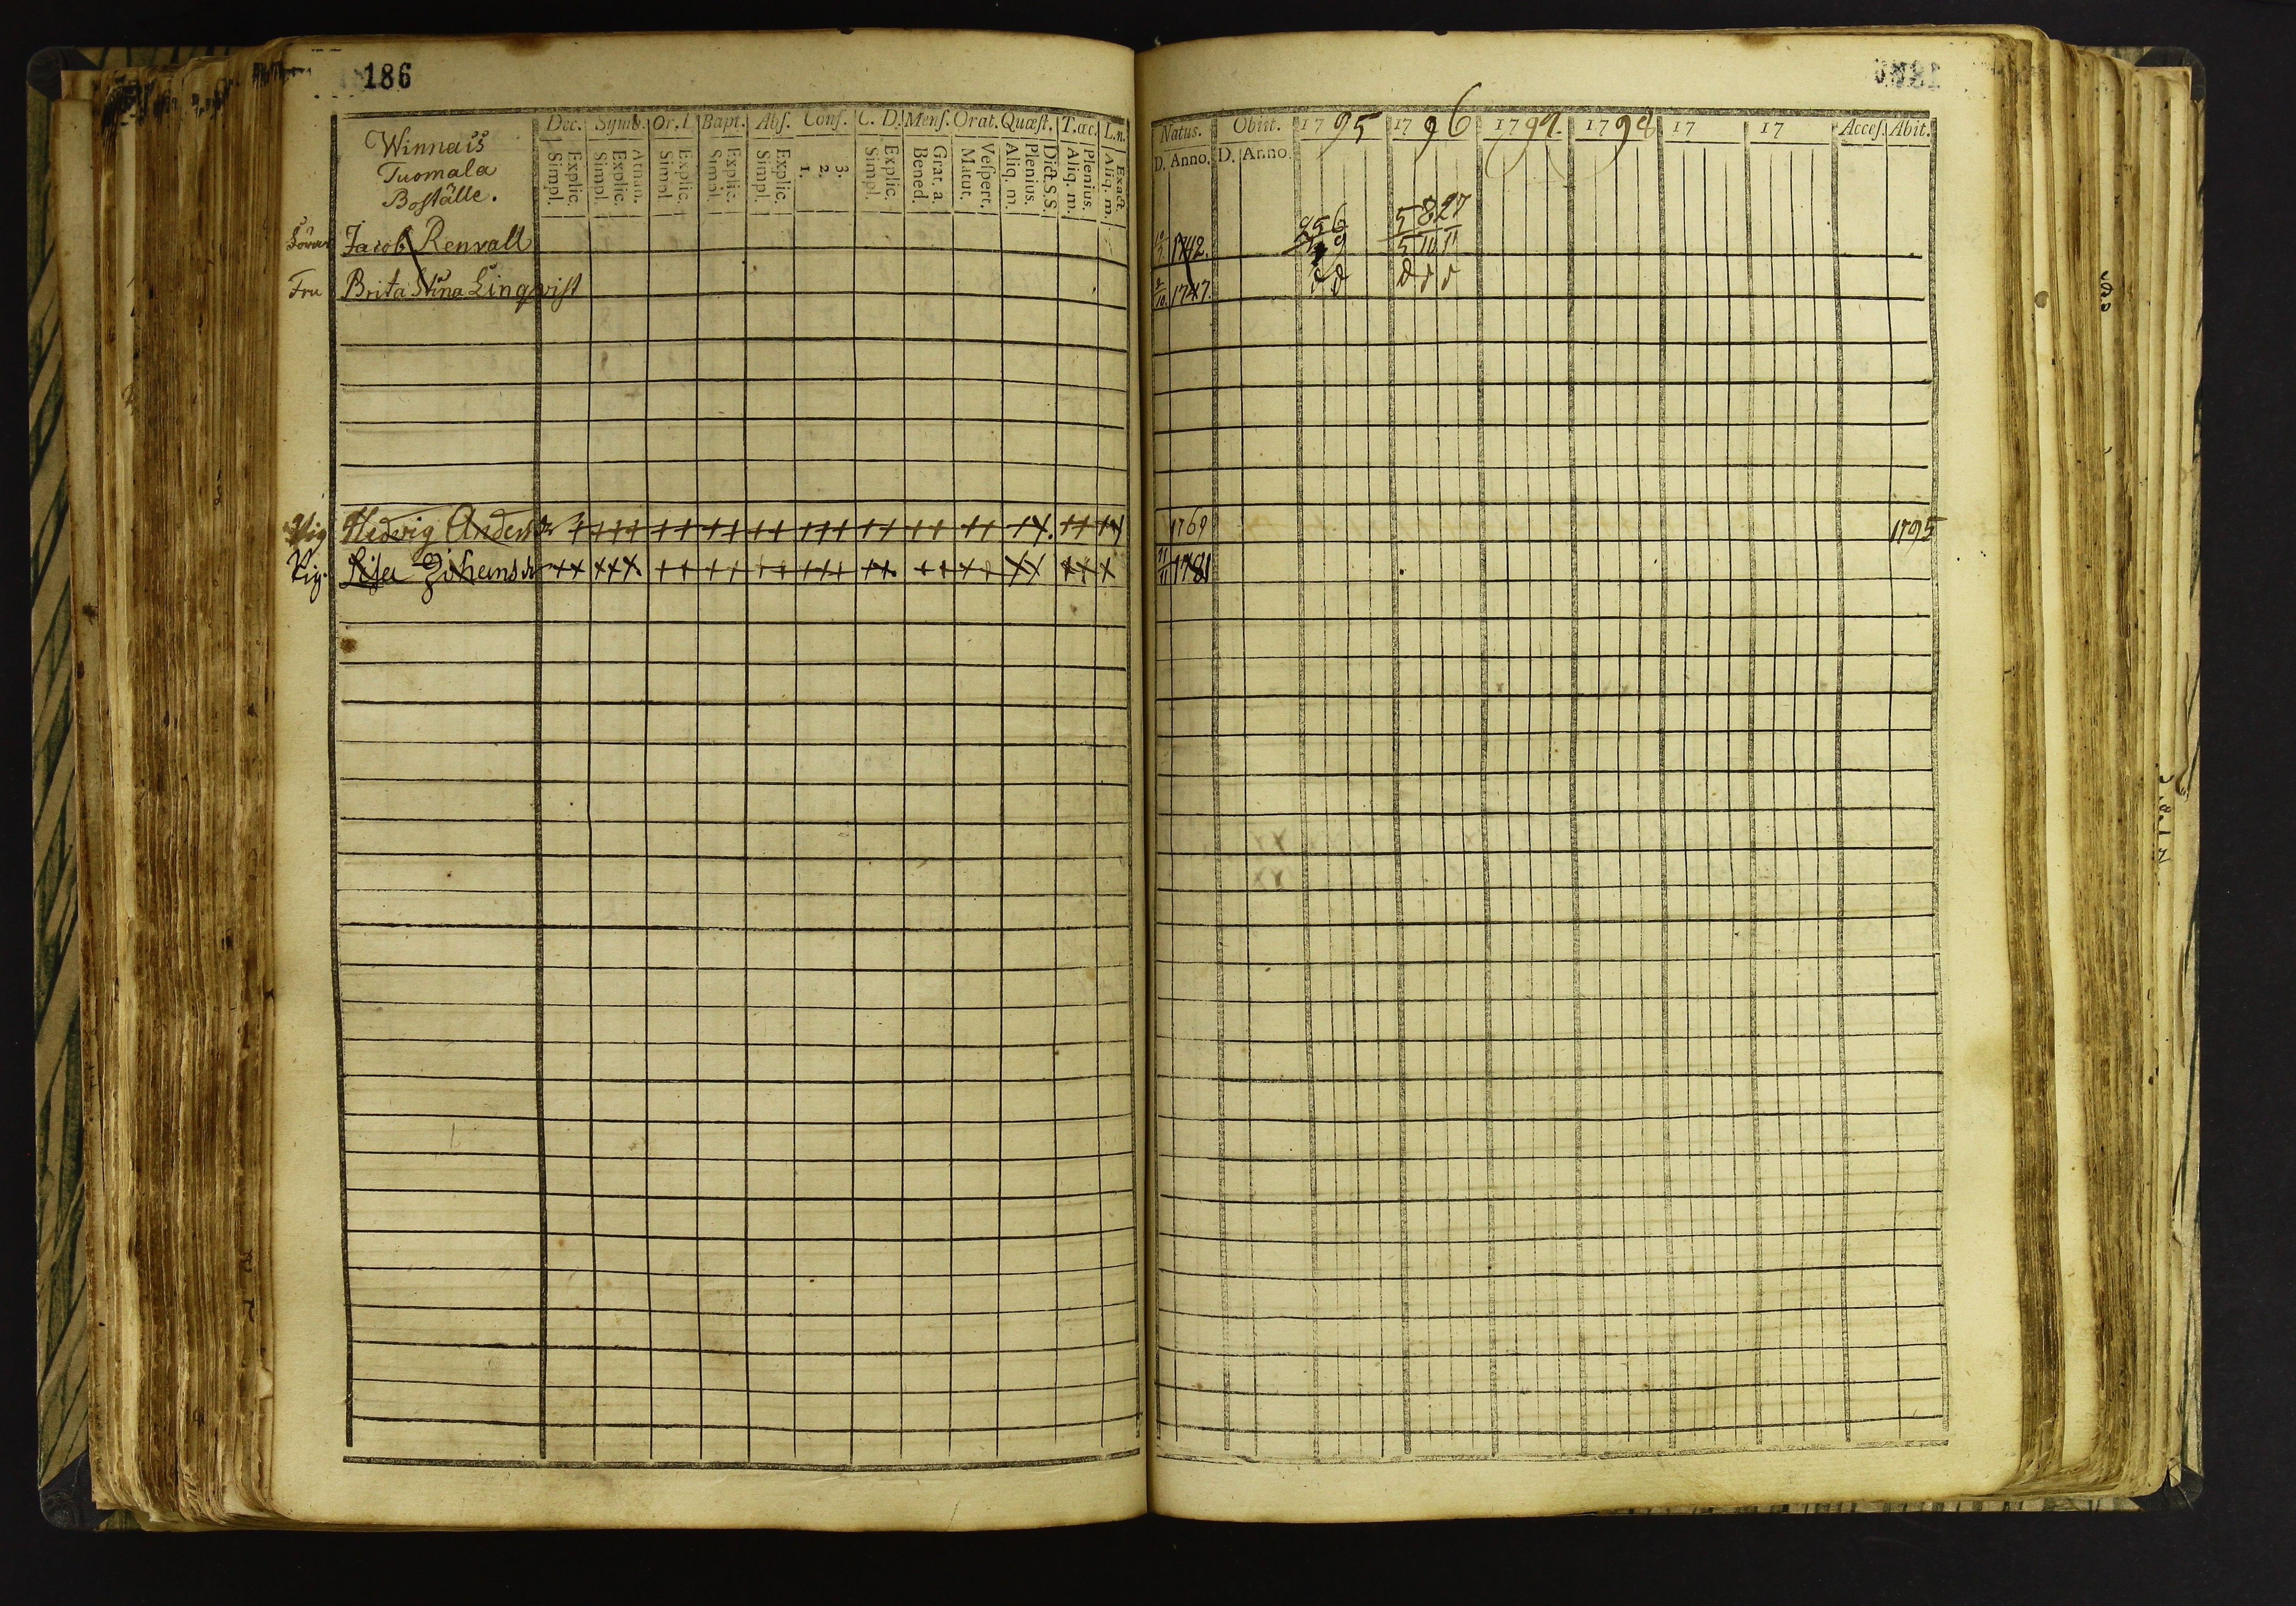 186
Winnais
Tuomala
Boställe.
Dec. Symb. Or. D. Bapt. Abs. Conf. C. D. Mens. Orat. Quæst. T. æc. L. n.
Explic. Simpl. Athan. Explic. Simpl. Explic. Simpl. Explic. Simpl. Explic. Simpl. 3. 2. 1. Explic. Simpl. Grat. a. Bened. Vespert. Matut. Dict. S.S. Plenius. Aliq. m. Plenius. Aliq. m. Exact. Aliq. m.
Natus. Obiit. 1795 1796 1797. 1798 17 17 Acces. Abit.
D. Anno. D. Anno.
Jacob Renvall 1742.
Fru Brita Stina Linqvist 1747.
Pig Hedvig Andersdr 1769 1795
Pig. Lisa Johansdr 1781